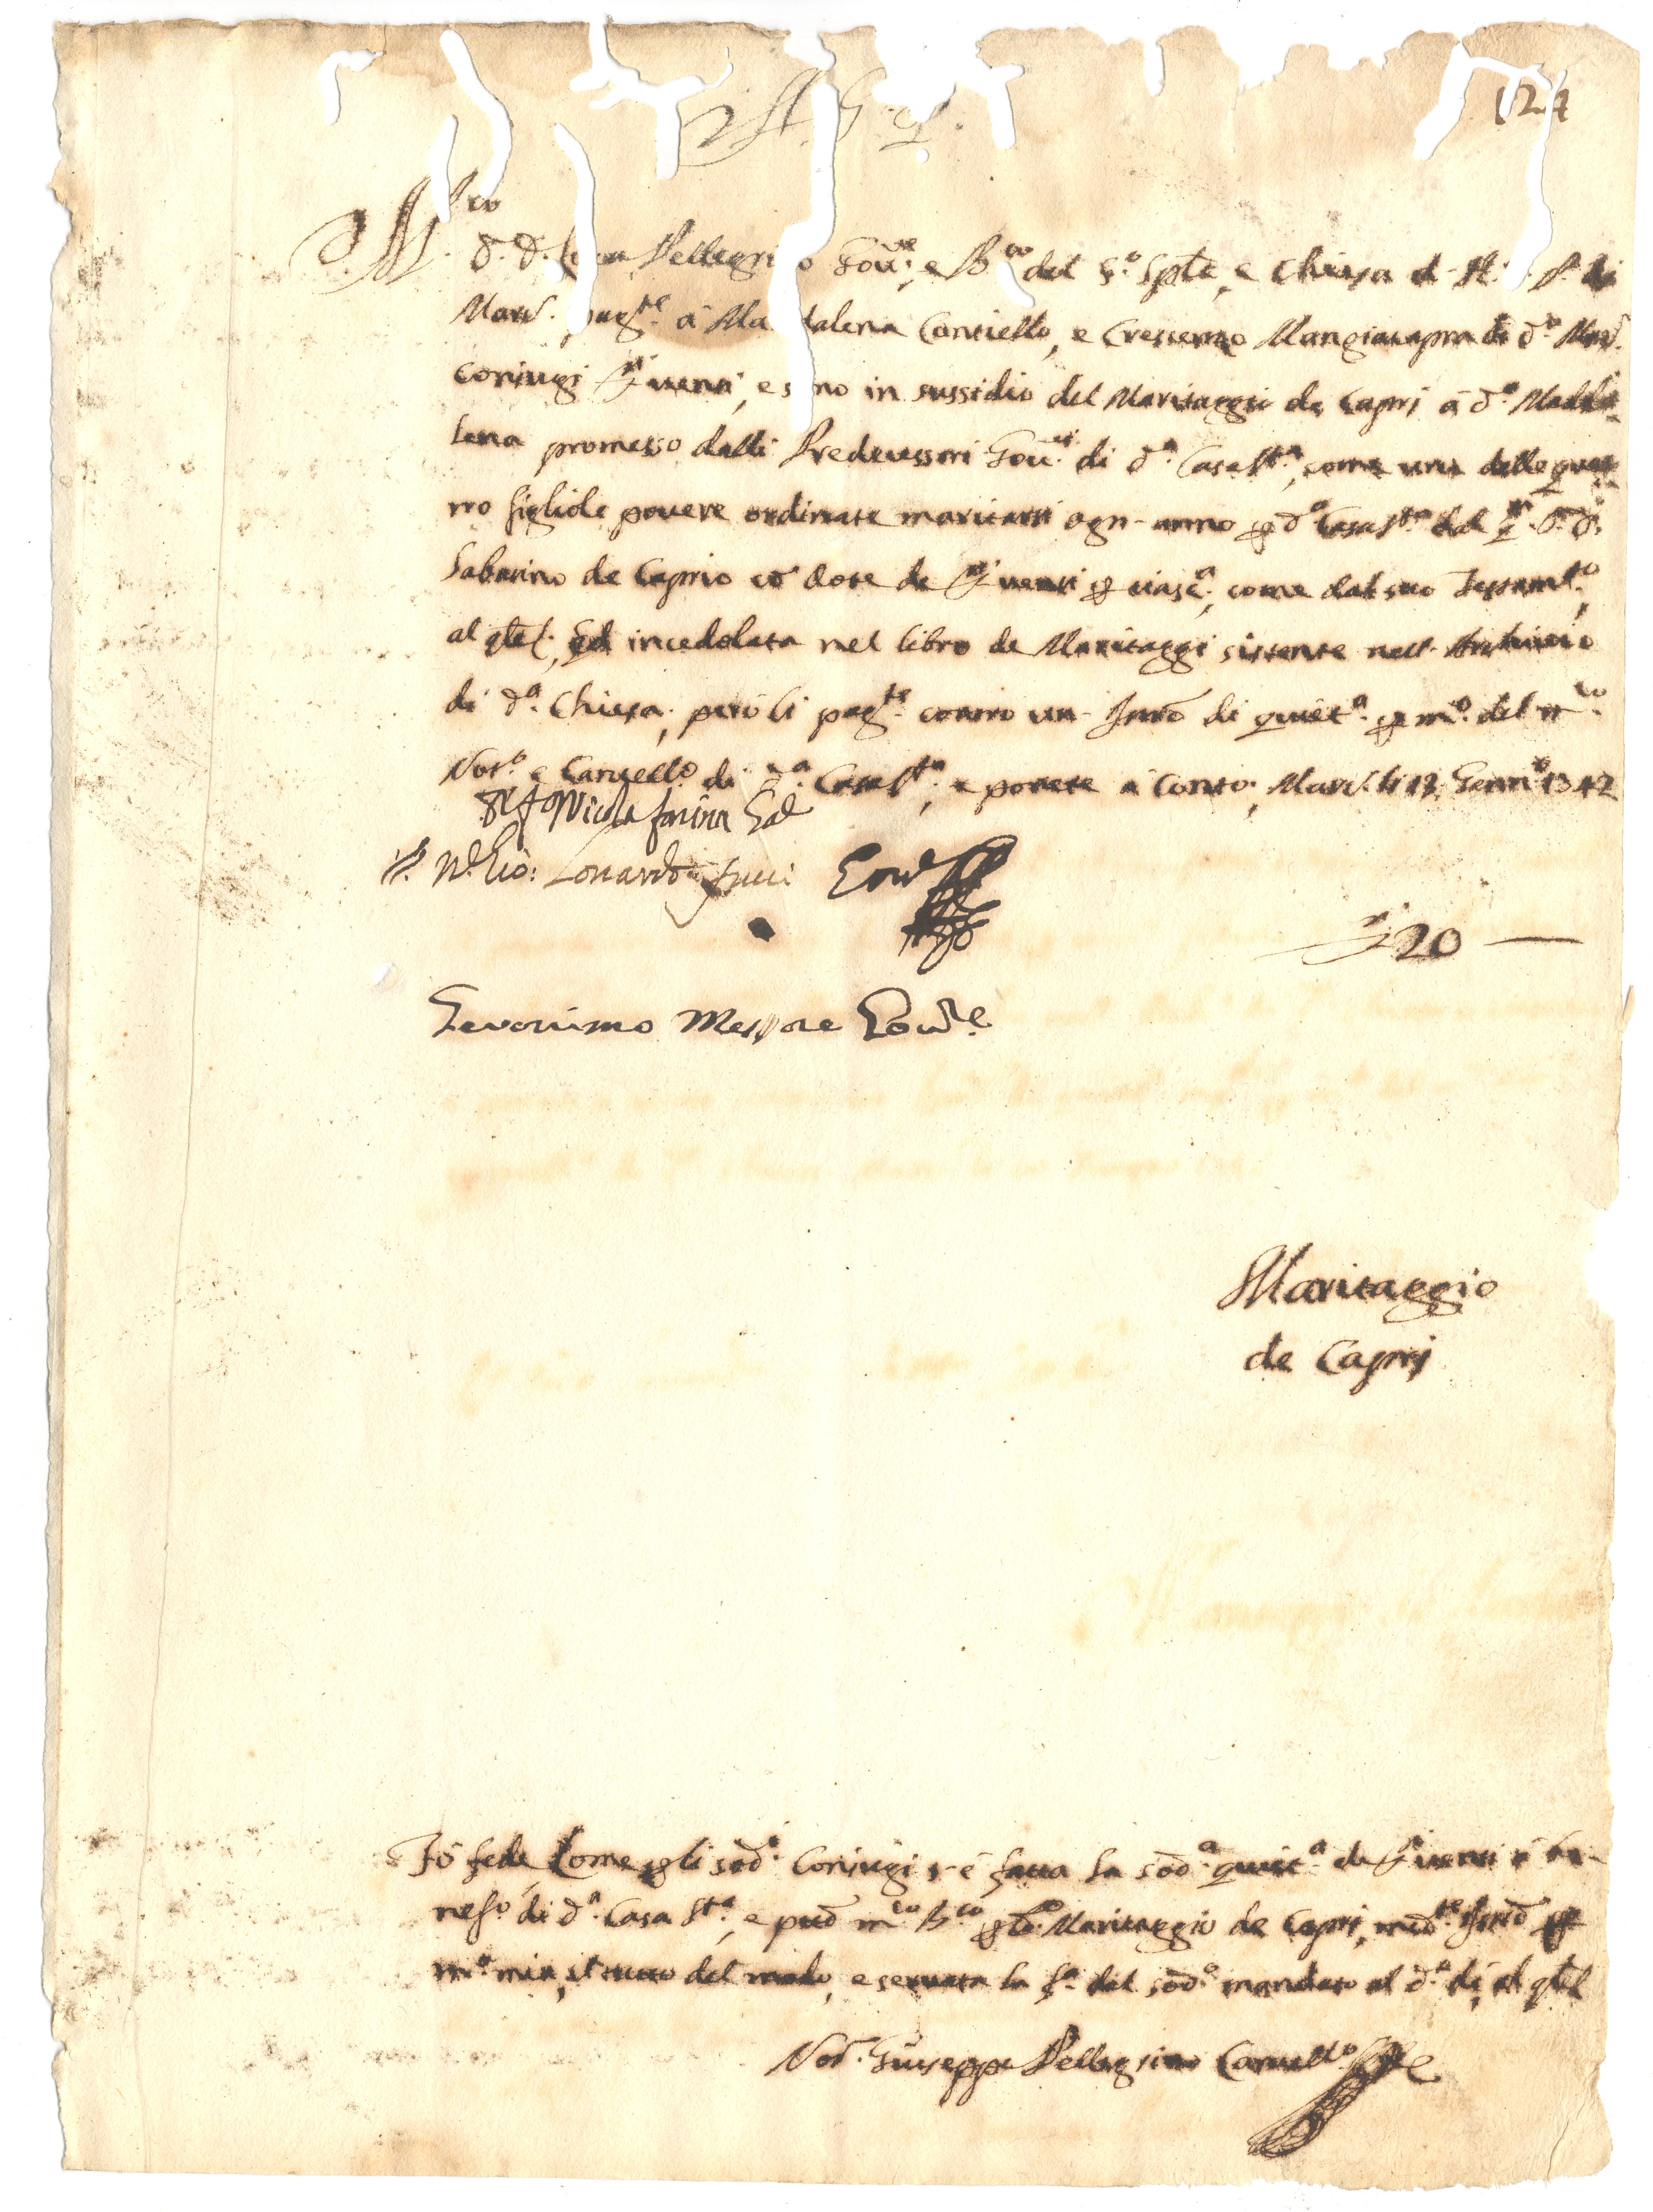 124
M.co
D. D. Pellegrino Gov.re, e B.co del S.o Spte, e Chiesa d
Mard. pag.te à Maddalena Conciello, e Crescenzo Mangiacapra di d.o Mard.
coniugi D.ti venti, e sono in sussidio del Maritaggio de Capri à d.a Madda-
lena promesso dalli Predecessori Gov.ri di d.a Casa S.ta, come una delle quat-
tro figliole povere ordinate maritarsi ogn-anno p d.a Casa S.ta dal q.m D. D.
Sabatino de Caprio co dote de D.ti venti p ciasc.a, come dal suo Testam.to,
al q.le incedolata nel libro de Maritaggi sistente nell-Archivio
di d.a Chiesa, però li pag.te contro un- Inro di quiet.a p m.o del m.co
Not.o e Canc.llo di d.a Casa S.ta, e ponete à conto, Mard. li 12 Genn.o 1742
Nicola farina
Lonardo
D.ti 20 —
Geronimo Messore Gov.re
Maritaggio
de Capri
Fò fede come p li sod.i Coniugi s-è fatta la sod.a quiet.a de D.ti venti à be-
nef.o di d.a Casa S.ta, e p.do m.co B.co p d.o Maritaggio de Capri, med.te Inro p
m.o mia, il tutto del modo, e servata la f.a del sod.o mandato al d.o dì, al q.le
Not. Giuseppe Pellegrino Canc.llo